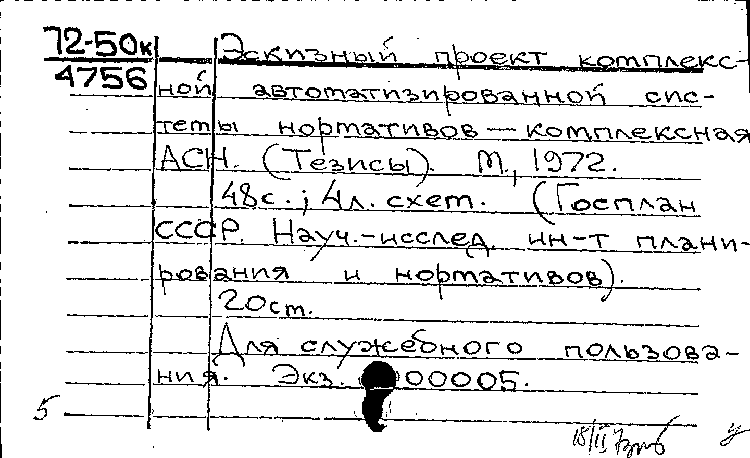 72-50к Эскизный проект комплекс-
4756 ной автоматизированной сис-
темы нормативов — комплексная
АСН. (Тезисы). М., 1972.
48с.; 4л. схем. (Госплан
СССР. Науч.-исслед. ин-т плани-
рования и нормативов).
20см.
Для служебного пользова-
ния. Экз. 00005.
5
18/II